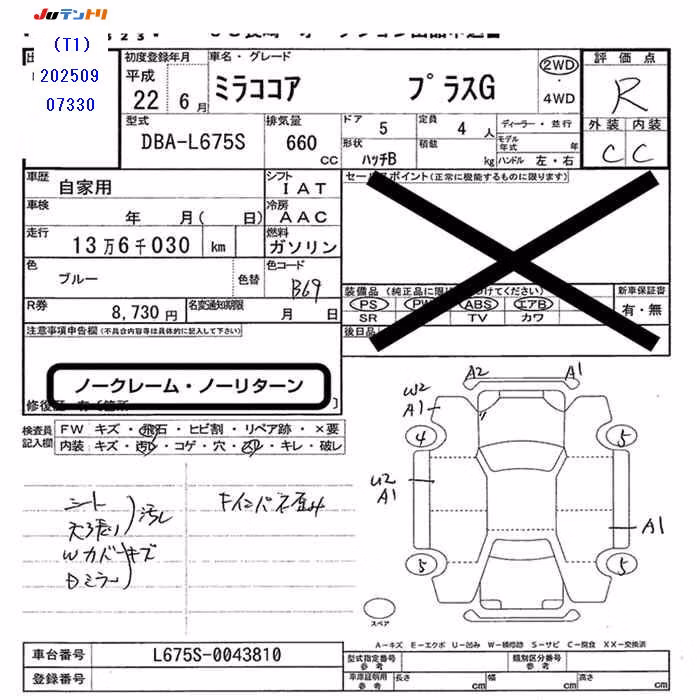 JUテントリ
(T1)
202509
07330
初度登録年月
平成
22年 6月
車名・グレード
ミラココア プラスG
2WD
・
4WD
評価点
R
外装 内装
C C
型式
DBA-L675S
排気量
660 CC
ドア 5
定員 4人
形状 ハッチB
積載 kg
ディーラー・並行
モデル年式 年
ハンドル 左・右
車歴
自家用
車検
年 月( 日)
走行
13万6千030 km
シフト
IAT
冷房
AAC
燃料
ガソリン
色
ブルー
色替
色コード
B69
R券
8,730円
名変通知期限
月 日
セールスポイント(正常に機能するものに限ります)
装備品(純正品に限り
けてください)
PS PW ABS エアB
SR TV カワ
新車保証書
有・無
後日品
注意事項申告欄(不具合内容等は具体的に記入して下さい)
ノークレーム・ノーリターン
検査員記入欄
FW キズ・飛石・ヒビ割・リペア跡・×要
内装 キズ・汚レ・コゲ・穴・スレ・キレ・破レ
シート
天張り
汚レ
Wカバーキズ
Dミラー
A2 A1
W2
A1
4 5
U2
A1
A1
5 5
スペア
A-キズ E-エクボ U-凹み W-補修跡 S-サビ C-腐食 XX-交換済
車台番号 L675S-0043810
登録番号
型式指定番号 参考
類別区分番号 参考
車庫証明用 参考
長さ cm 幅 cm 高さ cm